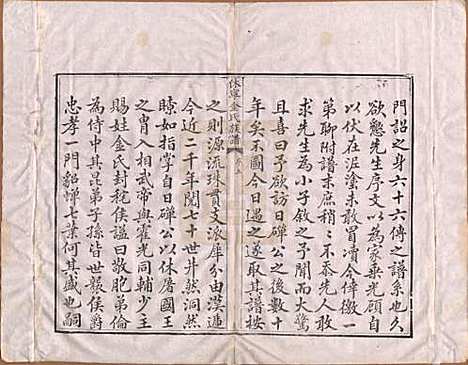 門詔之身六十六傳之譜系也久
欲懇先生序文以為家乘光顧自
以伏在泥塗未敢冒凟今倖徼一
第聊附譜末庶稍稍不忝先人敢
求先生為之小子敘之予聞而大驚
且喜曰予欲訪日磾公之後數十
年矣不圖今日遇之遂取其譜按
休寧金氏族譜
之則源流珠貫支派犀分由漢迄
今近二千年閱七十世井然洞然
瞭如指掌自日磾公以休屠國王
之胄入相武帝與霍光同輔少主
賜姓金氏封秺侯謚曰敬胞弟倫
為侍中其昆弟子孫皆世襲侯爵
忠孝一門貂蟬七葉何其盛也嗣